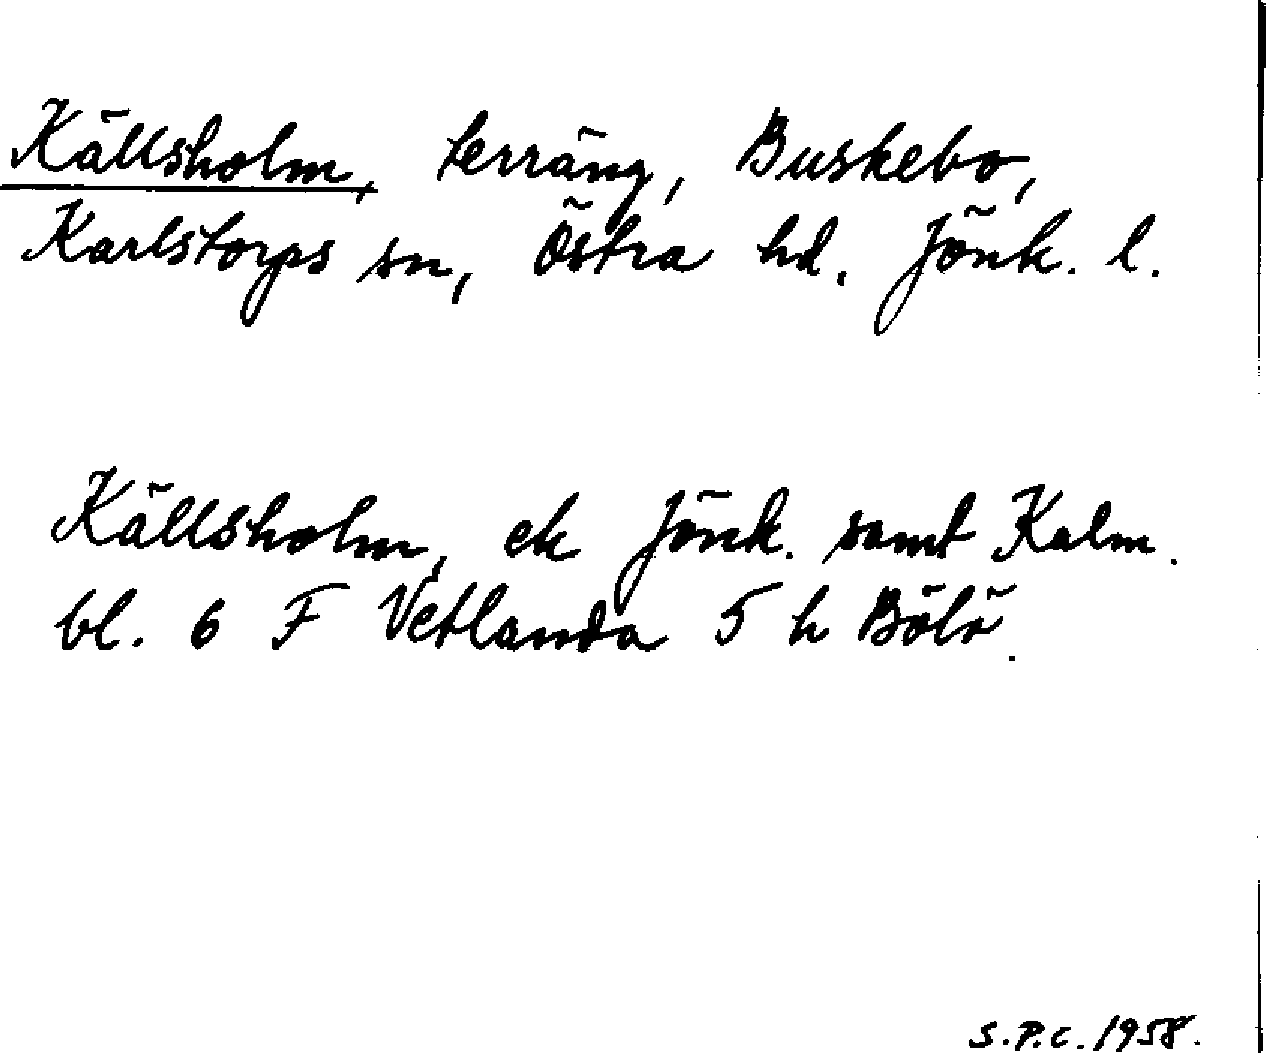 Källsholm, terräng, Buskebo,
Karlstorps sn, Östra hd. Jönk. l.
Källsholm, ek Jönk. samt Kalm.
bl. 6 F Vetlanda 5 h Bölö.
S.P.C. 1958.